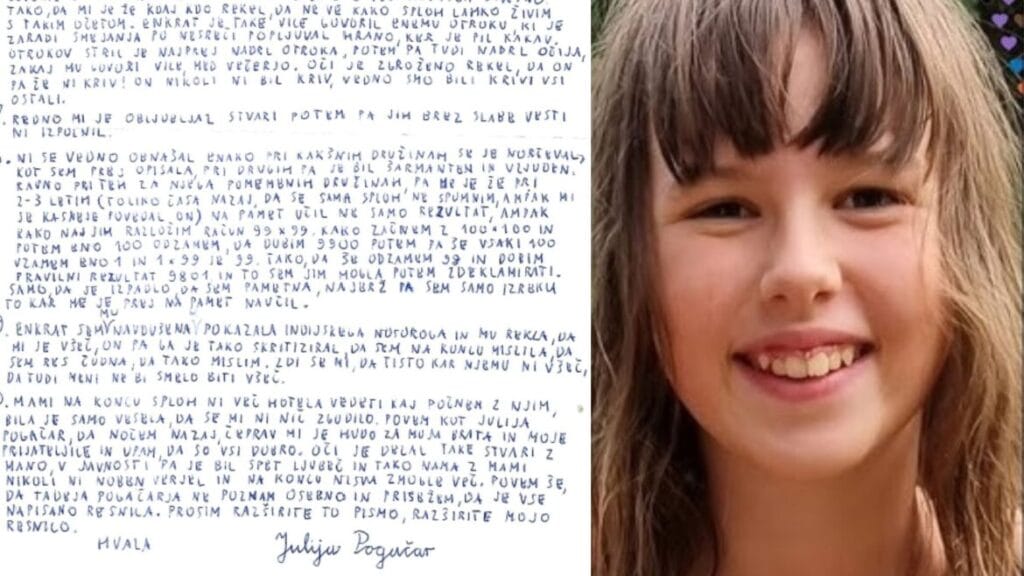 TAKO, DA MI JE ŽE KDAJ KDO REKEL, DA NE VE KAKO SPLOH LAHKO ŽIVIM
S TAKIM OČETOM. ENKRAT JE TAKE VICE GOVORIL ENEMU OTROKU, KI JE
ZARADI SMEJANJA PO NESREČI POPLJUVAL HRANO, KER JE PIL KAKAV,
OTROKOV STRIC JE NAJPREJ NADRL OTROKA, POTEM PA TUDI NADRL OČIJA,
ZAKAJ MU GOVORI VICE MED VEČERJO. OČI JE ZGROŽENO REKEL, DA ON
PA ŽE NI KRIV! ON NIKOLI NI BIL KRIV, VEDNO SMO BILI KRIVI VSI
OSTALI.
REDNO MI JE OBLJUBLJAL STVARI POTEM PA JIH BREZ SLABE VESTI
NI IZPOLNIL.
NI SE VEDNO OBNAŠAL ENAKO PRI KAKŠNIH DRUŽINAH SE JE NORČEVAL,
KOT SEM PREJ OPISALA, PRI DRUGIH PA JE BIL ŠARMANTEN IN VLJUDEN.
RAVNO PRI TEH ZA NJEGA POMEMBNIH DRUŽINAH, PA ME JE ŽE PRI
2-3 LETIH (TOLIKO ČASA NAZAJ, DA SE SAMA SPLOH NE SPOMNIM, AMPAK MI
JE KASNEJE POVEDAL ON) NA PAMET UČIL NE SAMO REZULTAT, AMPAK
KAKO NAJ JIM RAZLOŽIM RAČUN 99 x 99. KAKO ZAČNEM Z 100 x 100 IN
POTEM ENO 100 ODZAMEM, DA DOBIM 9900 POTEM PA ŠE VSAKI 100
VZAMEM ENO 1 IN 1 x 99 JE 99. TAKO, DA ŠE ODZAMEM 99 IN DOBIM
PRAVILNI REZULTAT 9801 IN TO SEM JIM MOGLA POTEM ZDEKLAMIRATI.
SAMO, DA JE IZPADLO, DA SEM PAMETNA, NAJBRŽ PA SEM SAMO IZREKLA
TO KAR ME JE PREJ NA PAMET NAUČIL.
ENKRAT SEM MU NAVDUŠENA POKAZALA INDIJSKEGA NOSOROGA IN MU REKLA, DA
MI JE VŠEČ, ON PA GA JE TAKO SKRITIZIRAL, DA SEM NA KONCU MISLILA, DA
SEM RES ČUDNA, DA TAKO MISLIM. ZDI SE MI, DA TISTO KAR NJEMU NI VŠEČ,
DA TUDI MENI NE BI SMELO BITI VŠEČ.
MAMI NA KONCU SPLOH NI VEČ HOTELA VEDETI KAJ POČNEM Z NJIM,
BILA JE SAMO VESELA, DA SE MI NI NIČ ZGODILO. POVEM KOT JULIJA
POGAČAR, DA NOČEM NAZAJ, ČEPRAV MI JE HUDO ZA MOJA BRATA IN MOJE
PRIJATELJICE IN UPAM, DA SO VSI DOBRO. OČI JE DELAL TAKE STVARI Z
MANO, V JAVNOSTI PA JE BIL SPET LJUBEČ IN TAKO NAMA Z MAMI
NIKOLI NI NOBEN VERJEL IN NA KONCU NISVA ZMOGLE VEČ. POVEM ŠE,
DA TADEJA POGAČARJA NE POZNAM OSEBNO IN PRISEŽEM, DA JE VSE
NAPISANO RESNICA. PROSIM RAZŠIRITE TO PISMO, RAZŠIRITE MOJO
RESNICO.
HVALA Julija Pogačar